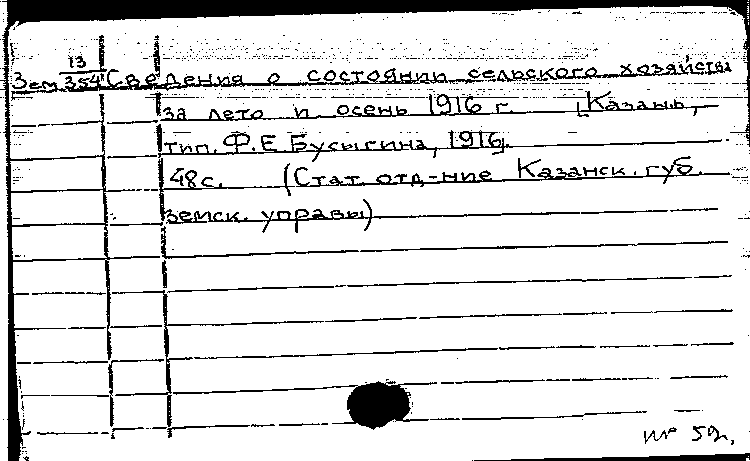 13
Зем 354 Сведения о состоянии сельского хозяйства
за лето и осень 1916 г. [Казань,
тип. Ф. Е. Бусыгина, 1916].
48 с. (Стат. отд-ние Казанск. губ.
земск. управы)